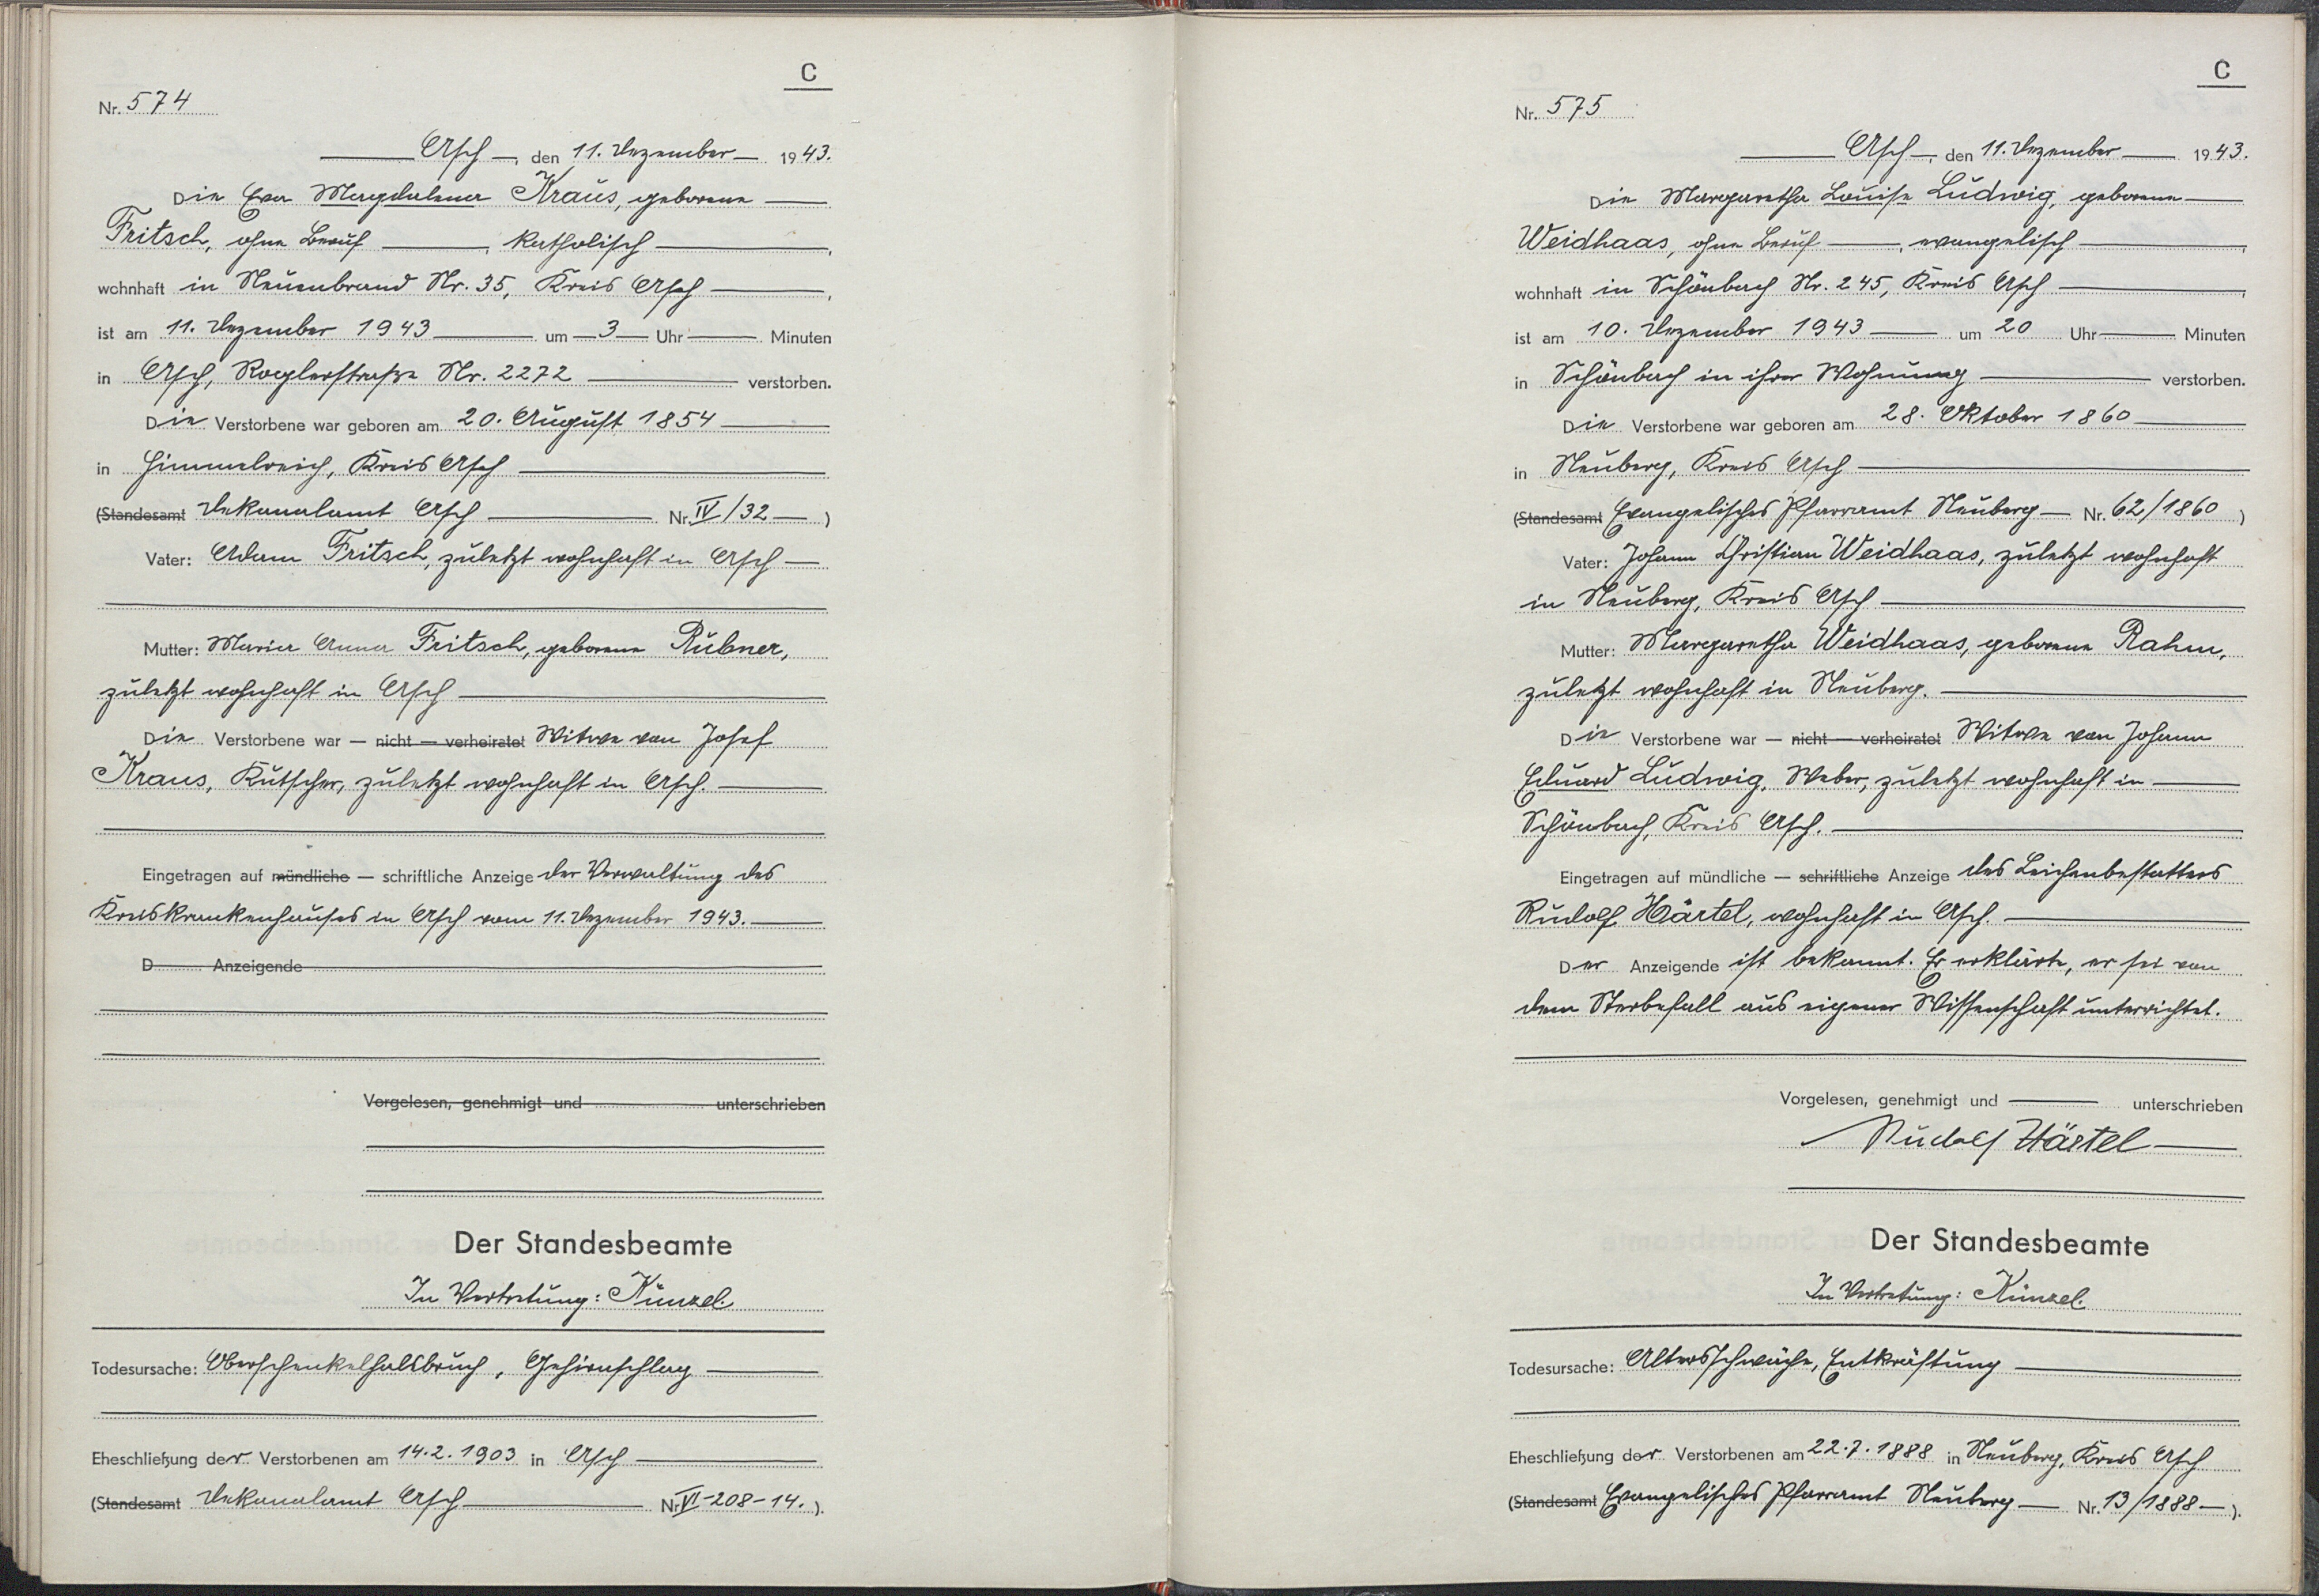 C
Nr. 574
Asch, den 11. Dezember 1943.
Die Eva Magdalena Kraus, geborene
Fritsch, ohne Beruf, katholisch,
wohnhaft in Neuenbrand Nr. 35, Kreis Asch,
ist am 11. Dezember 1943 um 3 Uhr Minuten
in Asch, Roglerstraße Nr. 2272 verstorben.
Die Verstorbene war geboren am 20. August 1854
in Himmelreich, Kreis Asch
(Standesamt Dekanalamt Asch Nr. IV/32)
Vater: Adam Fritsch, zuletzt wohnhaft in Asch
Mutter: Maria Anna Fritsch, geborene Rubner,
zuletzt wohnhaft in Asch
Die Verstorbene war — nicht — verheiratet Witwe von Josef
Kraus, Kutscher, zuletzt wohnhaft in Asch.
Eingetragen auf mündliche — schriftliche Anzeige der Verwaltung des
Kreiskrankenhauses in Asch vom 11. Dezember 1943.
D Anzeigende
Vorgelesen, genehmigt und unterschrieben
Der Standesbeamte
In Vertretung: Künzel.
Todesursache: Oberschenkelhalsbruch, Gehirnschlag
Eheschließung der Verstorbenen am 14.2.1903 in Asch
(Standesamt Dekanalamt Asch Nr. VI-208-14.).
C
Nr. 575
Asch, den 11. Dezember 1943.
Die Margaretha Louise Ludwig, geborene
Weidhaas, ohne Beruf, evangelisch,
wohnhaft in Schönbach Nr. 245, Kreis Asch,
ist am 10. Dezember 1943 um 20 Uhr Minuten
in Schönbach in ihrer Wohnung verstorben.
Die Verstorbene war geboren am 28. Oktober 1860
in Neuberg, Kreis Asch
(Standesamt Evangelisches Pfarramt Neuberg Nr. 62/1860)
Vater: Johann Christian Weidhaas, zuletzt wohnhaft
in Neuberg, Kreis Asch
Mutter: Margaretha Weidhaas, geborene Rahm,
zuletzt wohnhaft in Neuberg.
Die Verstorbene war — nicht — verheiratet Witwe von Johann
Eduard Ludwig, Weber, zuletzt wohnhaft in
Schönbach, Kreis Asch.
Eingetragen auf mündliche — schriftliche Anzeige des Leichenbestatters
Rudolf Härtel, wohnhaft in Asch.
Der Anzeigende ist bekannt. Er erklärte, er sei von
dem Sterbefall aus eigener Wissenschaft unterrichtet.
Vorgelesen, genehmigt und unterschrieben
Rudolf Härtel
Der Standesbeamte
In Vertretung: Künzel.
Todesursache: Altersschwäche, Entkräftung
Eheschließung der Verstorbenen am 22.7.1888 in Neuberg, Kreis Asch
(Standesamt Evangelisches Pfarramt Neuberg Nr. 13/1888).